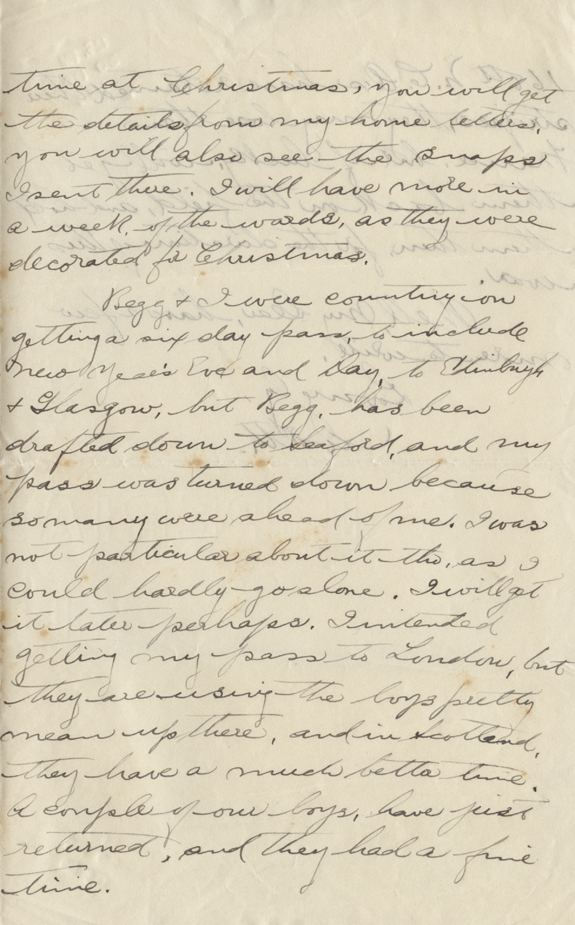 time at Christmas, you will get
the details from my home letters,
you will also see the snaps
I sent there. I will have more in
a week, of the wards, as they were
decorated for Christmas.
Begg & I were counting on
getting a six day pass, to include
New Year's Eve and Day, to Edinburgh
& Glasgow, but Begg, has been
drafted down to Seaford, and my
pass was turned down because
so many were ahead of me. I was
not particular about it tho, as I
could hardly go alone. I will get
it later perhaps. I intended
getting my pass to London, but
they are using the boys pretty
mean up there, and in Scotland,
they have a much better time.
A couple of our boys, have just
returned, and they had a fine
time.